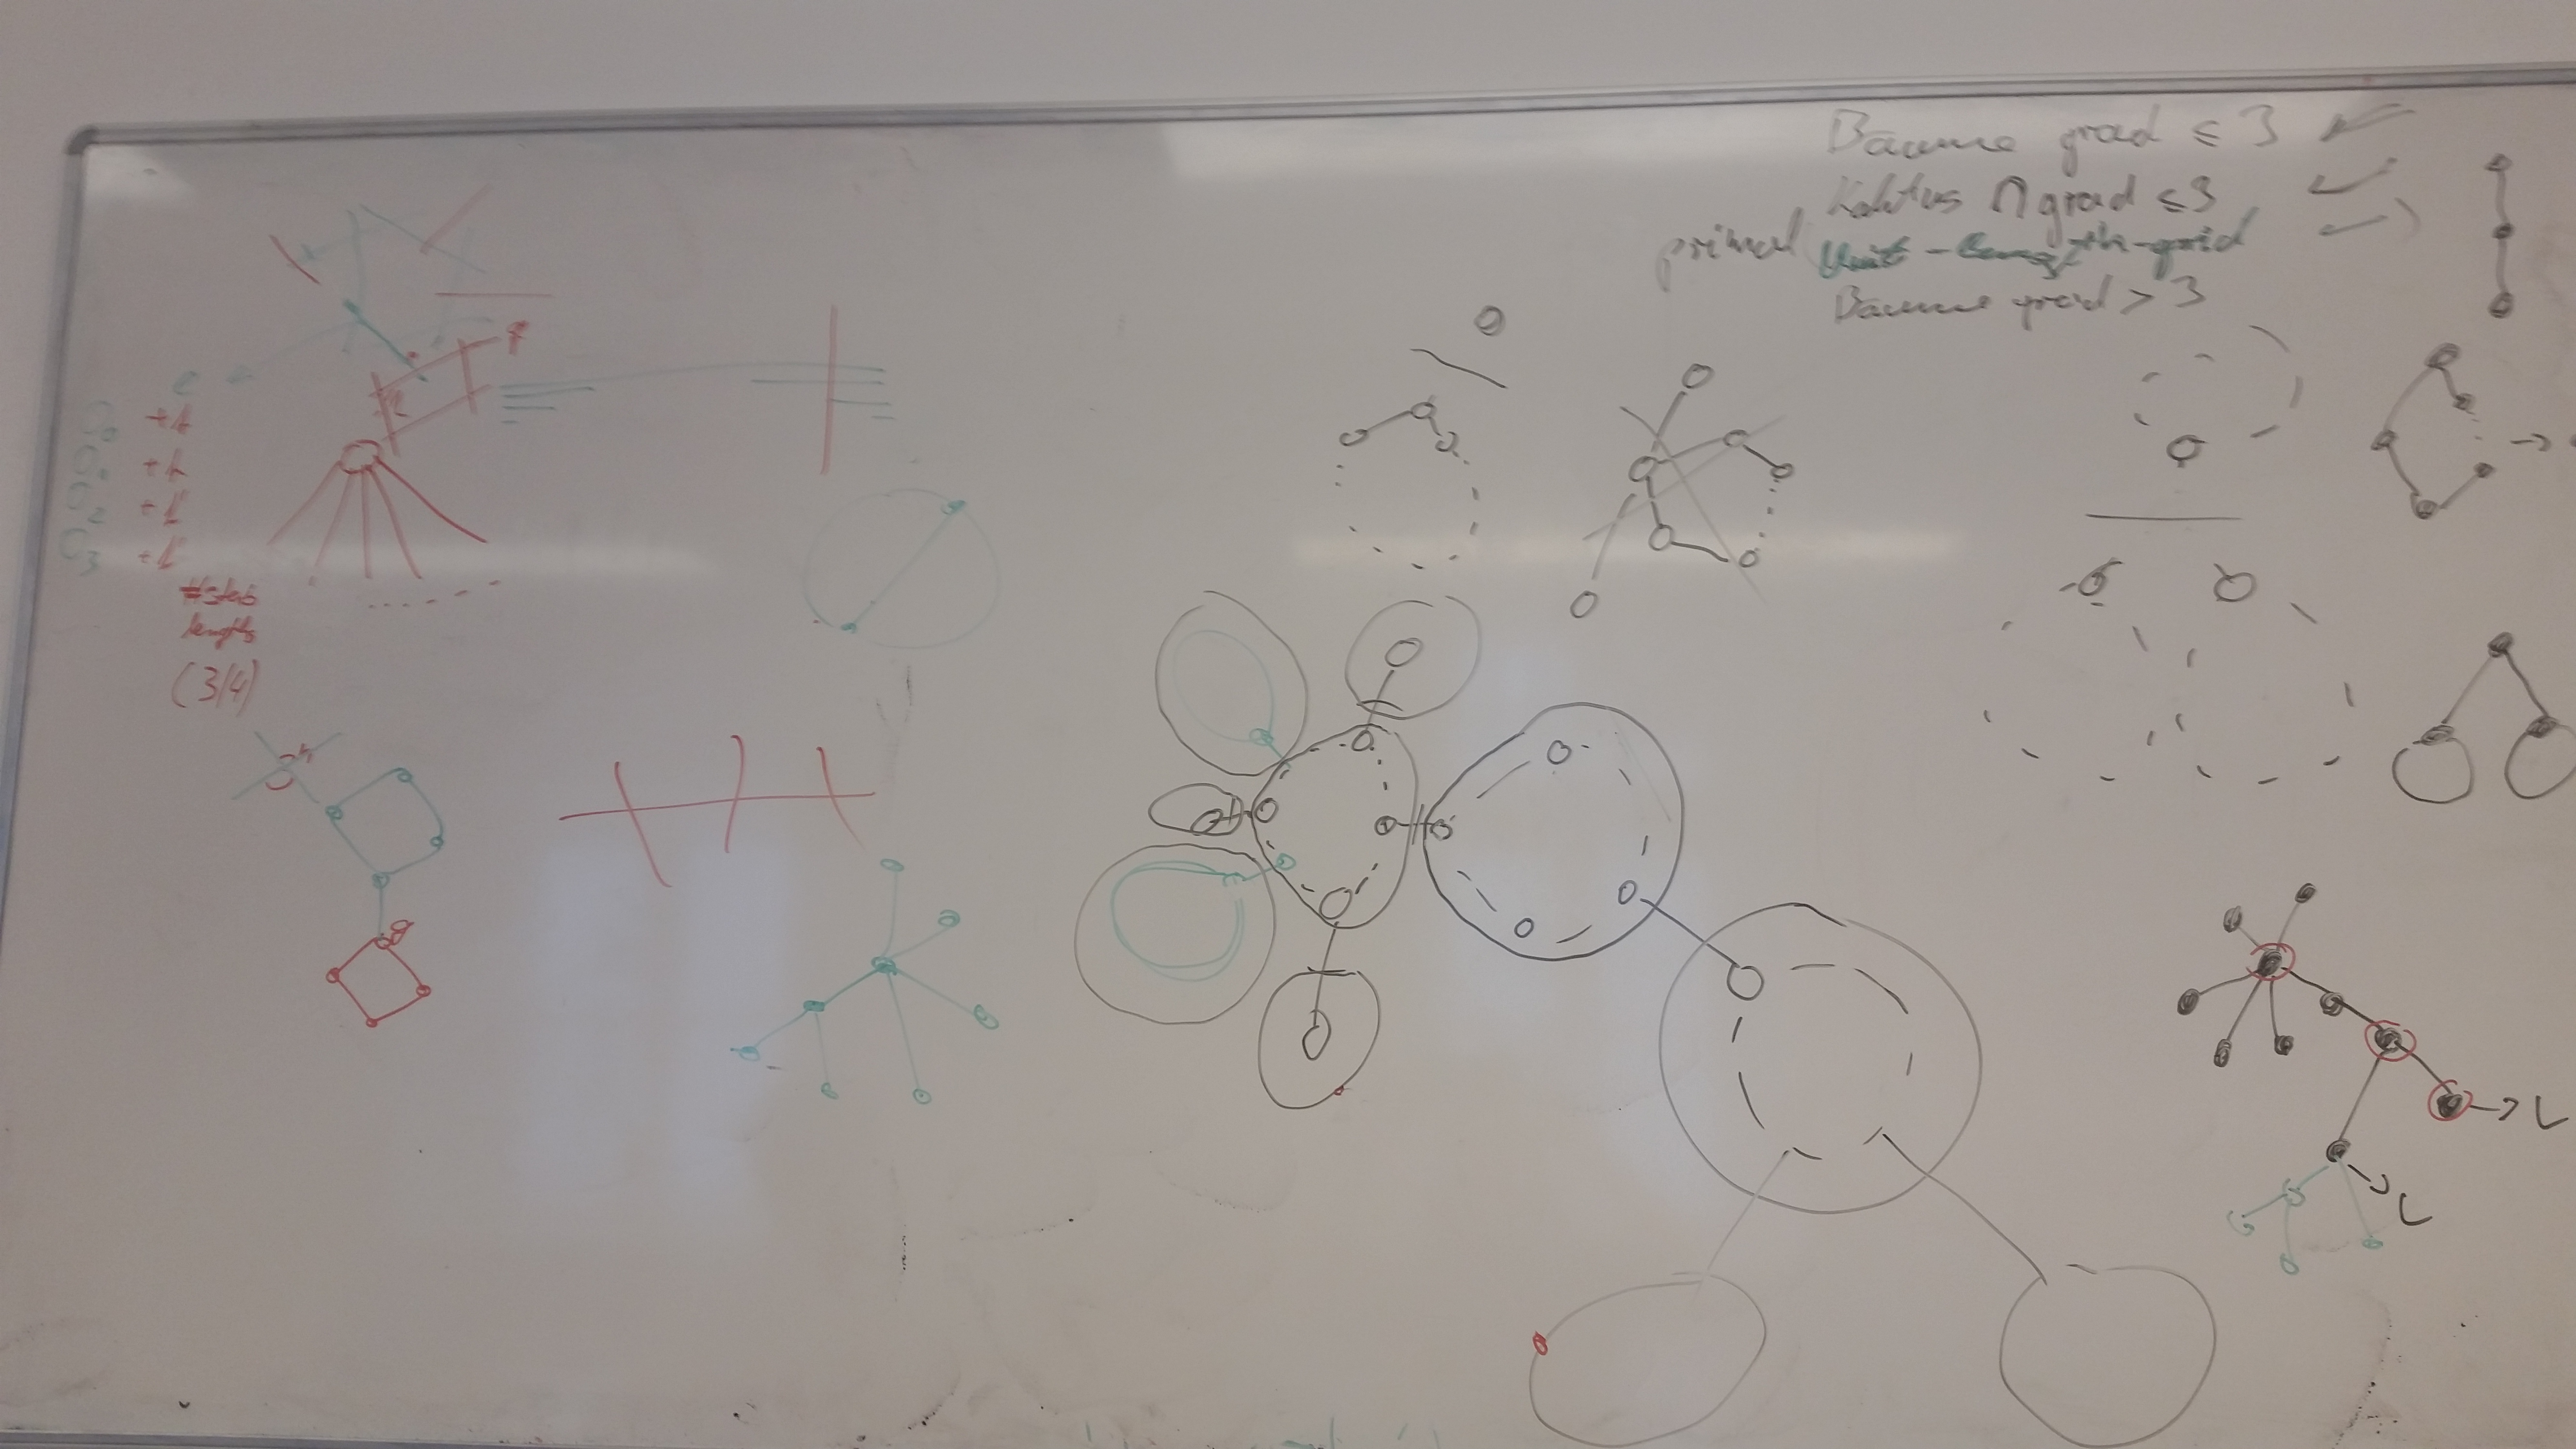 Bäume grad ≤ 3
Kaktus ∩ grad ≤ 3
primal Unit-length-grid
Bäume grad > 3
q
e
+h
+h
+l'
+l'
#stab
lengths
(3/4)
→ L
→ L